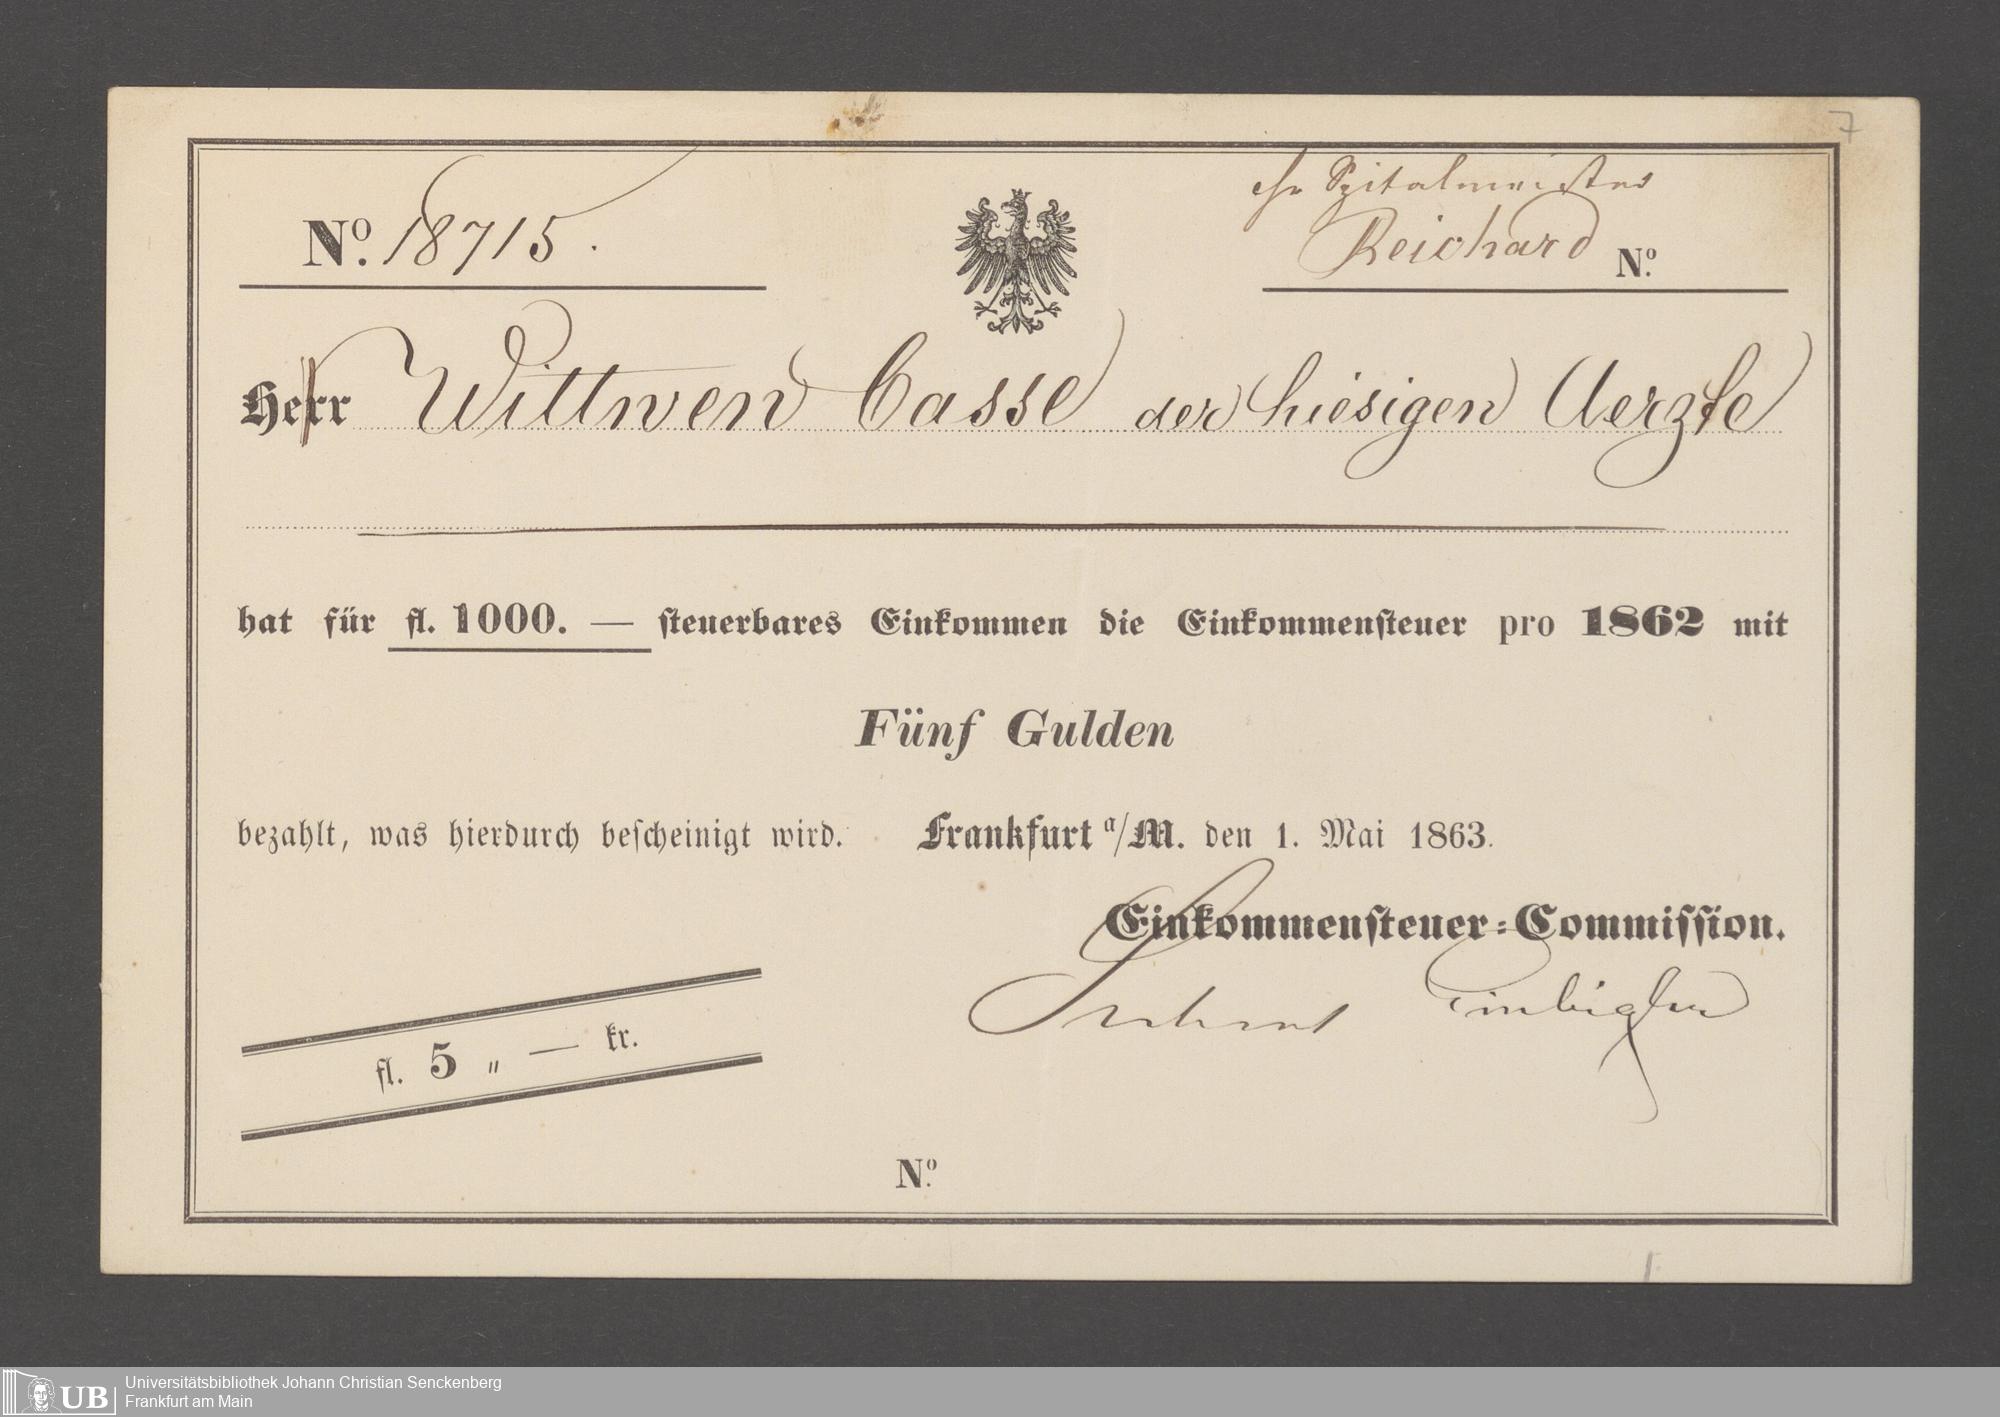 7
Spitalmeister
No. 18715. Reichard No.
Herr Wittwen Casse der hiesigen Aerzte
hat für fl. 1000. — steuerbares Einkommen die Einkommensteuer pro 1862 mit
Fünf Gulden
bezahlt, was hierdurch bescheinigt wird. Frankfurt a/M. den 1. Mai 1863.
Einkommensteuer-Commission.
fl. 5 „ — kr.
No.
UB Universitätsbibliothek Johann Christian Senckenberg
Frankfurt am Main